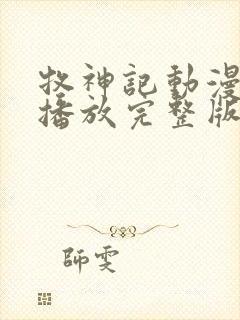 牧神記動漫
播放完整版
師雯